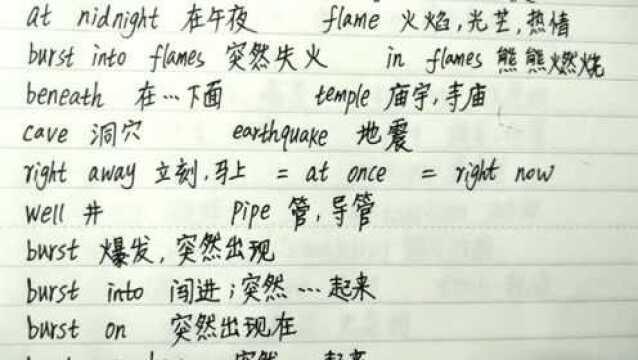 at nidnight 在午夜 flame 火焰,光芒,热情
burst into flames 突然失火 in flames 熊熊燃烧
beneath 在…下面 temple 庙宇,寺庙
cave 洞穴 earthquake 地震
right away 立刻,马上 = at once = right now
well 井 pipe 管,导管
burst 爆发,突然出现
burst into 闯进;突然…起来
burst on 突然出现在
突然 起来